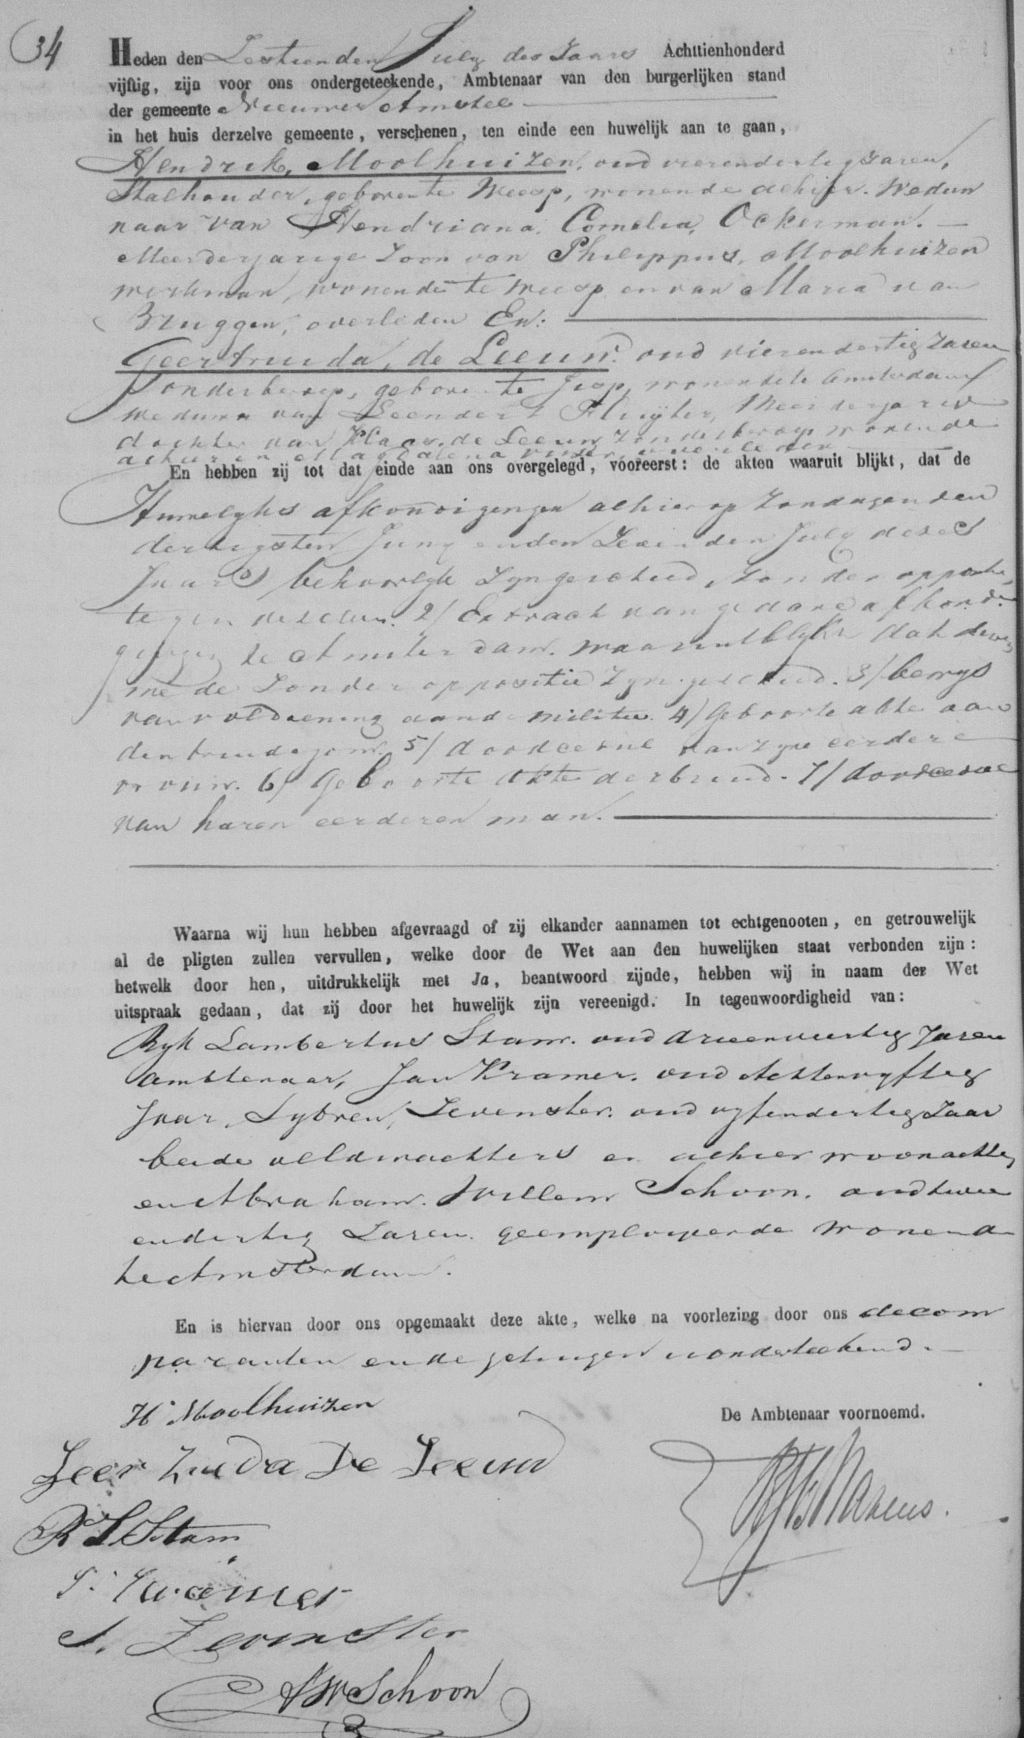 34
Heden den Zestienden July des Jaars Achttienhonderd
vijftig, zijn voor ons ondergeteekende, Ambtenaar van den burgerlijken stand
der gemeente Nieuwer Amstel
in het huis derzelve gemeente, verschenen, ten einde een huwelijk aan te gaan,
Hendrik, Moolhuizen, oud vierendertig Jaren,
Stalhouder, geboren te Weesp, wonende alhier. Weduw
naar van Hendriana, Cornelia, Ockerman.
Meerderjarige Zoon van Philippus, Moolhuizen
werkman, wonende te Weesp en van Maria van
Bruggen, overleden En:
Geertruida, de Leeuw. oud vierendertig Jaren
Zonder beroep, geboren te Jisp, wonende te Amsterdam
weduwe van Leendert Fluijter, Meerderjarige
dochter van Klaas, de Leeuw, Zonder beroep wonende
alhier en Magdalena overleden
En hebben zij tot dat einde aan ons overgelegd, vooreerst: de akten waaruit blijkt, dat de
Huwelyks afkondigingen alhier op Zondagen den
dertigsten Juny en den Zevenden July dezes
Jaars behoorlyk Zyn geschied, Zonder oppositie
tegen dezelve. 2/ Extract van gedane afkondi
gingen te Amsterdam. waaruit blykt dat deze
mede Zonder oppositie Zyn geschied. 3/ bewys
van voldoening aan de Militie. 4/ Geboorte akte van
den bruidegom. 5/ doodcedul van zyne eerdere
vrouw. 6/ Geboorte Akte der bruid. 7/ doodcedul
van haren eerderen man.
Waarna wij hun hebben afgevraagd of zij elkander aannamen tot echtgenooten, en getrouwelijk
al de pligten zullen vervullen, welke door de Wet aan den huwelijken staat verbonden zijn:
hetwelk door hen, uitdrukkelijk met Ja, beantwoord zijnde, hebben wij in naam der Wet
uitspraak gedaan, dat zij door het huwelijk zijn vereenigd. In tegenwoordigheid van:
Ryk Lambertus Stam. oud drieenveertig Jaren
Ambtenaar, Jan Kramer. oud Achtenvyftig
Jaar, Sybren, Zevenster. oud vyfendertig Jaar
beide veldwachters en alhier woonachtig
en Abraham. Willem Schoon. oud twee
endertig Jaren. geemployeerde wonende
te Amsterdam.
En is hiervan door ons opgemaakt deze akte, welke na voorlezing door ons de com
paranten en de getuigen is onderteekend.
H Moolhuizen
De Ambtenaar voornoemd.
Geertruida De Leeuw
R L Stam
J. Kramer
S. Zevenster
A W Schoon